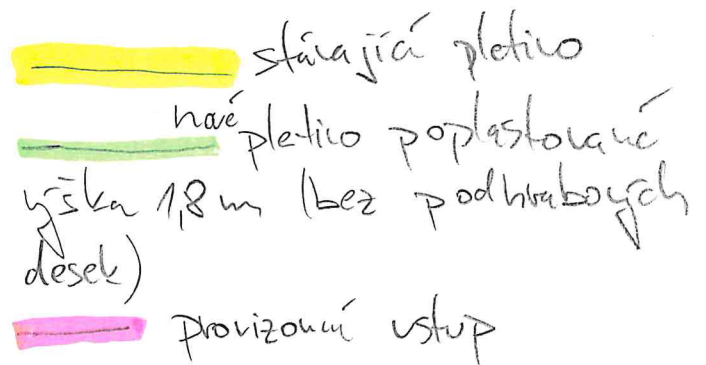 stávající pletivo
nové pletivo poplastované
výška 1,8 m (bez podhrabových
desek)
provizorní vstup